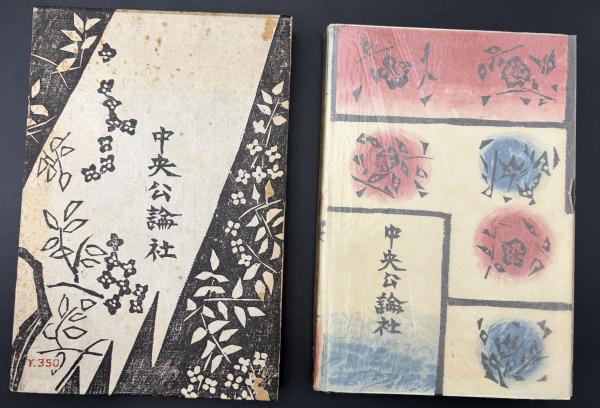 中央公論社
¥.350
中央公論社